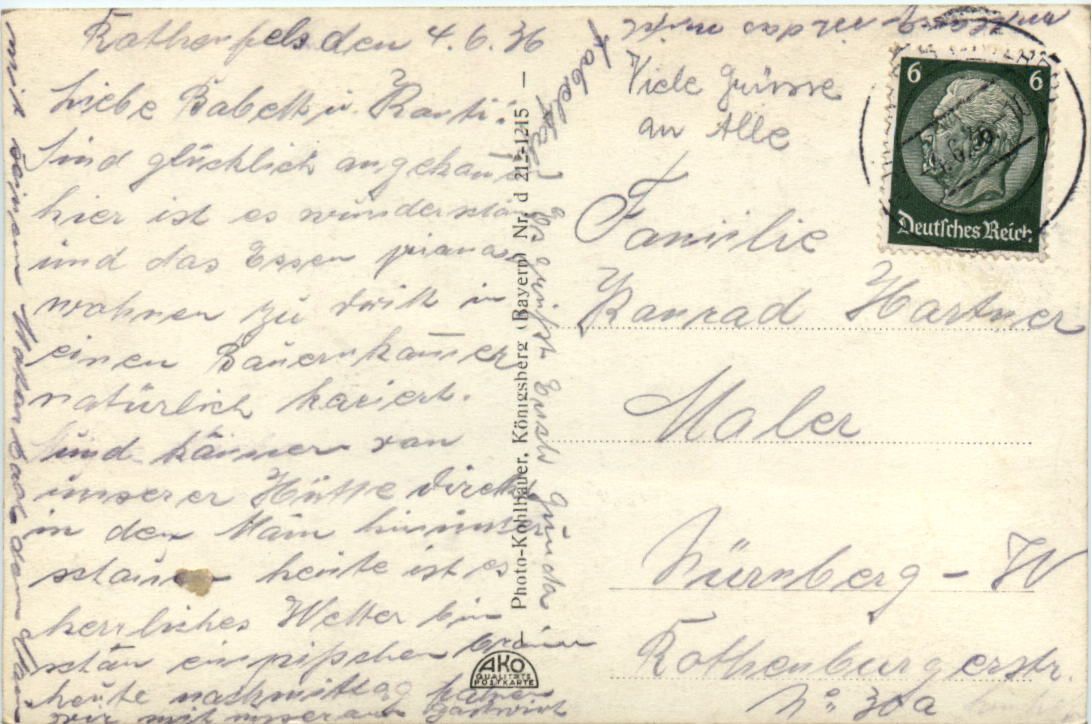 Rothenfels den 4.6.36
Liebe Babett u.
Sind glücklich angekommen
hier ist es wunderschön
und das Essen prima
wohnen zu dritt in
einen Bauernhause
natürlich kariert.
und können von
unserer Hütte direkt
in den Main hinunter
schauen heute ist es
herrliches Wetter bin
schon ein pißchen braun
heute nachmittag fahren
wir mit unserem Gastwirt
mit seinem Motorboot den Main
Es grüßt Euch
Photo-Kohlbauer, Königsberg (Bayern) Nr. d 212-1215
AKO
QUALITÄTS
POSTKARTE
Viele Grüsse
an Alle
6 6
Deutsches Reich
Familie
Konrad Hartner
Maler
Nürnberg - W
Rothenburgerstr.
No 30a